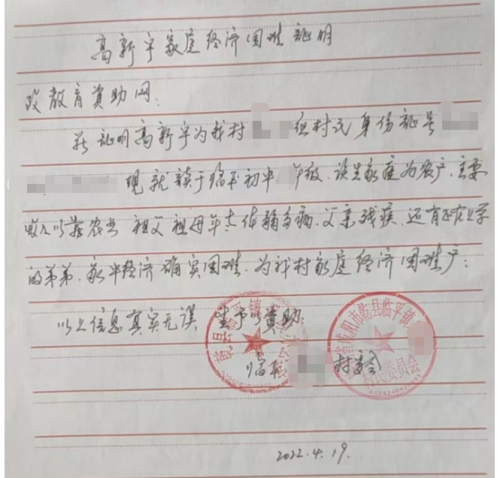 高新宇家庭经济困难证明
致教育资助网:
兹证明高新宇为我村 组村民 身份证号
现就读于临平初中 年级,该生家庭为农户,主要
收入以靠农业 祖父祖母年老体弱多病,父亲残疾,还有正在上学
的弟弟,家中经济确实困难,为我村家庭经济困难户;
以上信息真实无误 望予以资助.
临平 村委会
乾县临平镇
咸阳市乾县临平镇
村民委员会
2022.4.19.